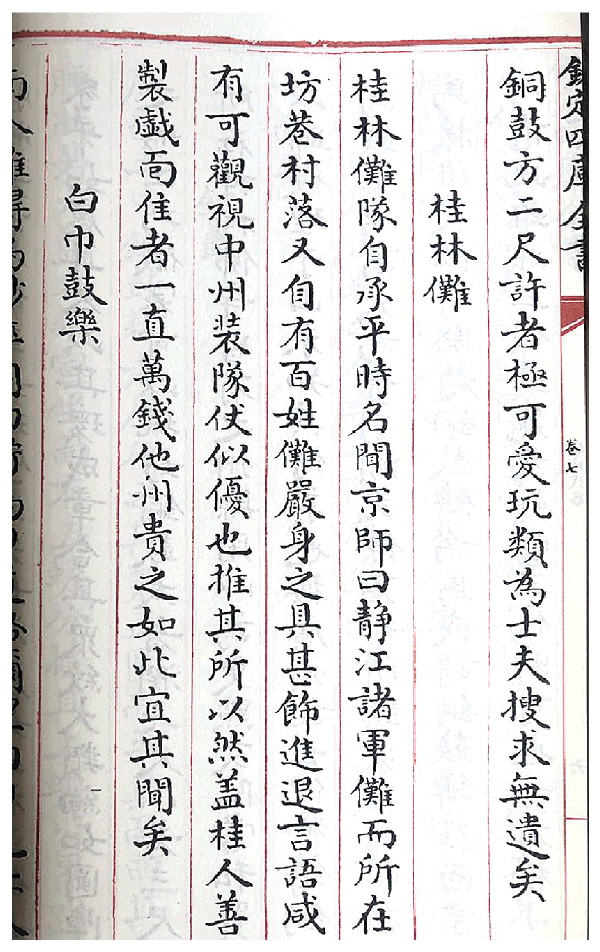 欽定四庫全書
卷七
銅鼓方二尺許者極可愛玩類為士夫搜求無遺矣
桂林儺
桂林儺隊自承平時名聞京師曰静江諸軍儺而所在
坊巷村落又自有百姓儺嚴身之具甚飾進退言語咸
有可觀視中州装隊仗似優也推其所以然盖桂人善
製戯面佳者一直萬錢他州貴之如此宜其聞矣
白巾鼓樂